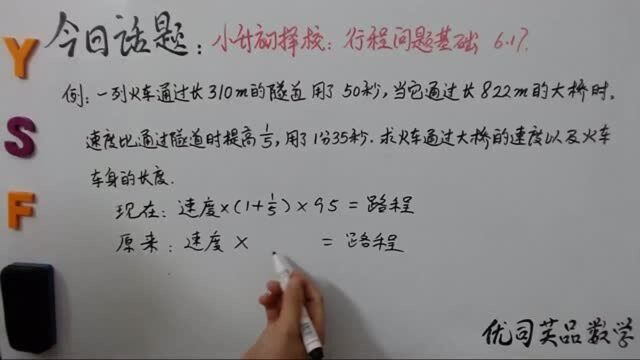 今日话题：小升初择校：行程问题基础 6.17.
Y
S
F
例：一列火车通过长310m的隧道用了50秒，当它通过长822m的大桥时，
速度比通过隧道时提高1/5，用了1分35秒．求火车通过大桥的速度以及火车
车身的长度．
现在：速度×(1+1/5)×95=路程
原来：速度× =路程
优司芙品数学